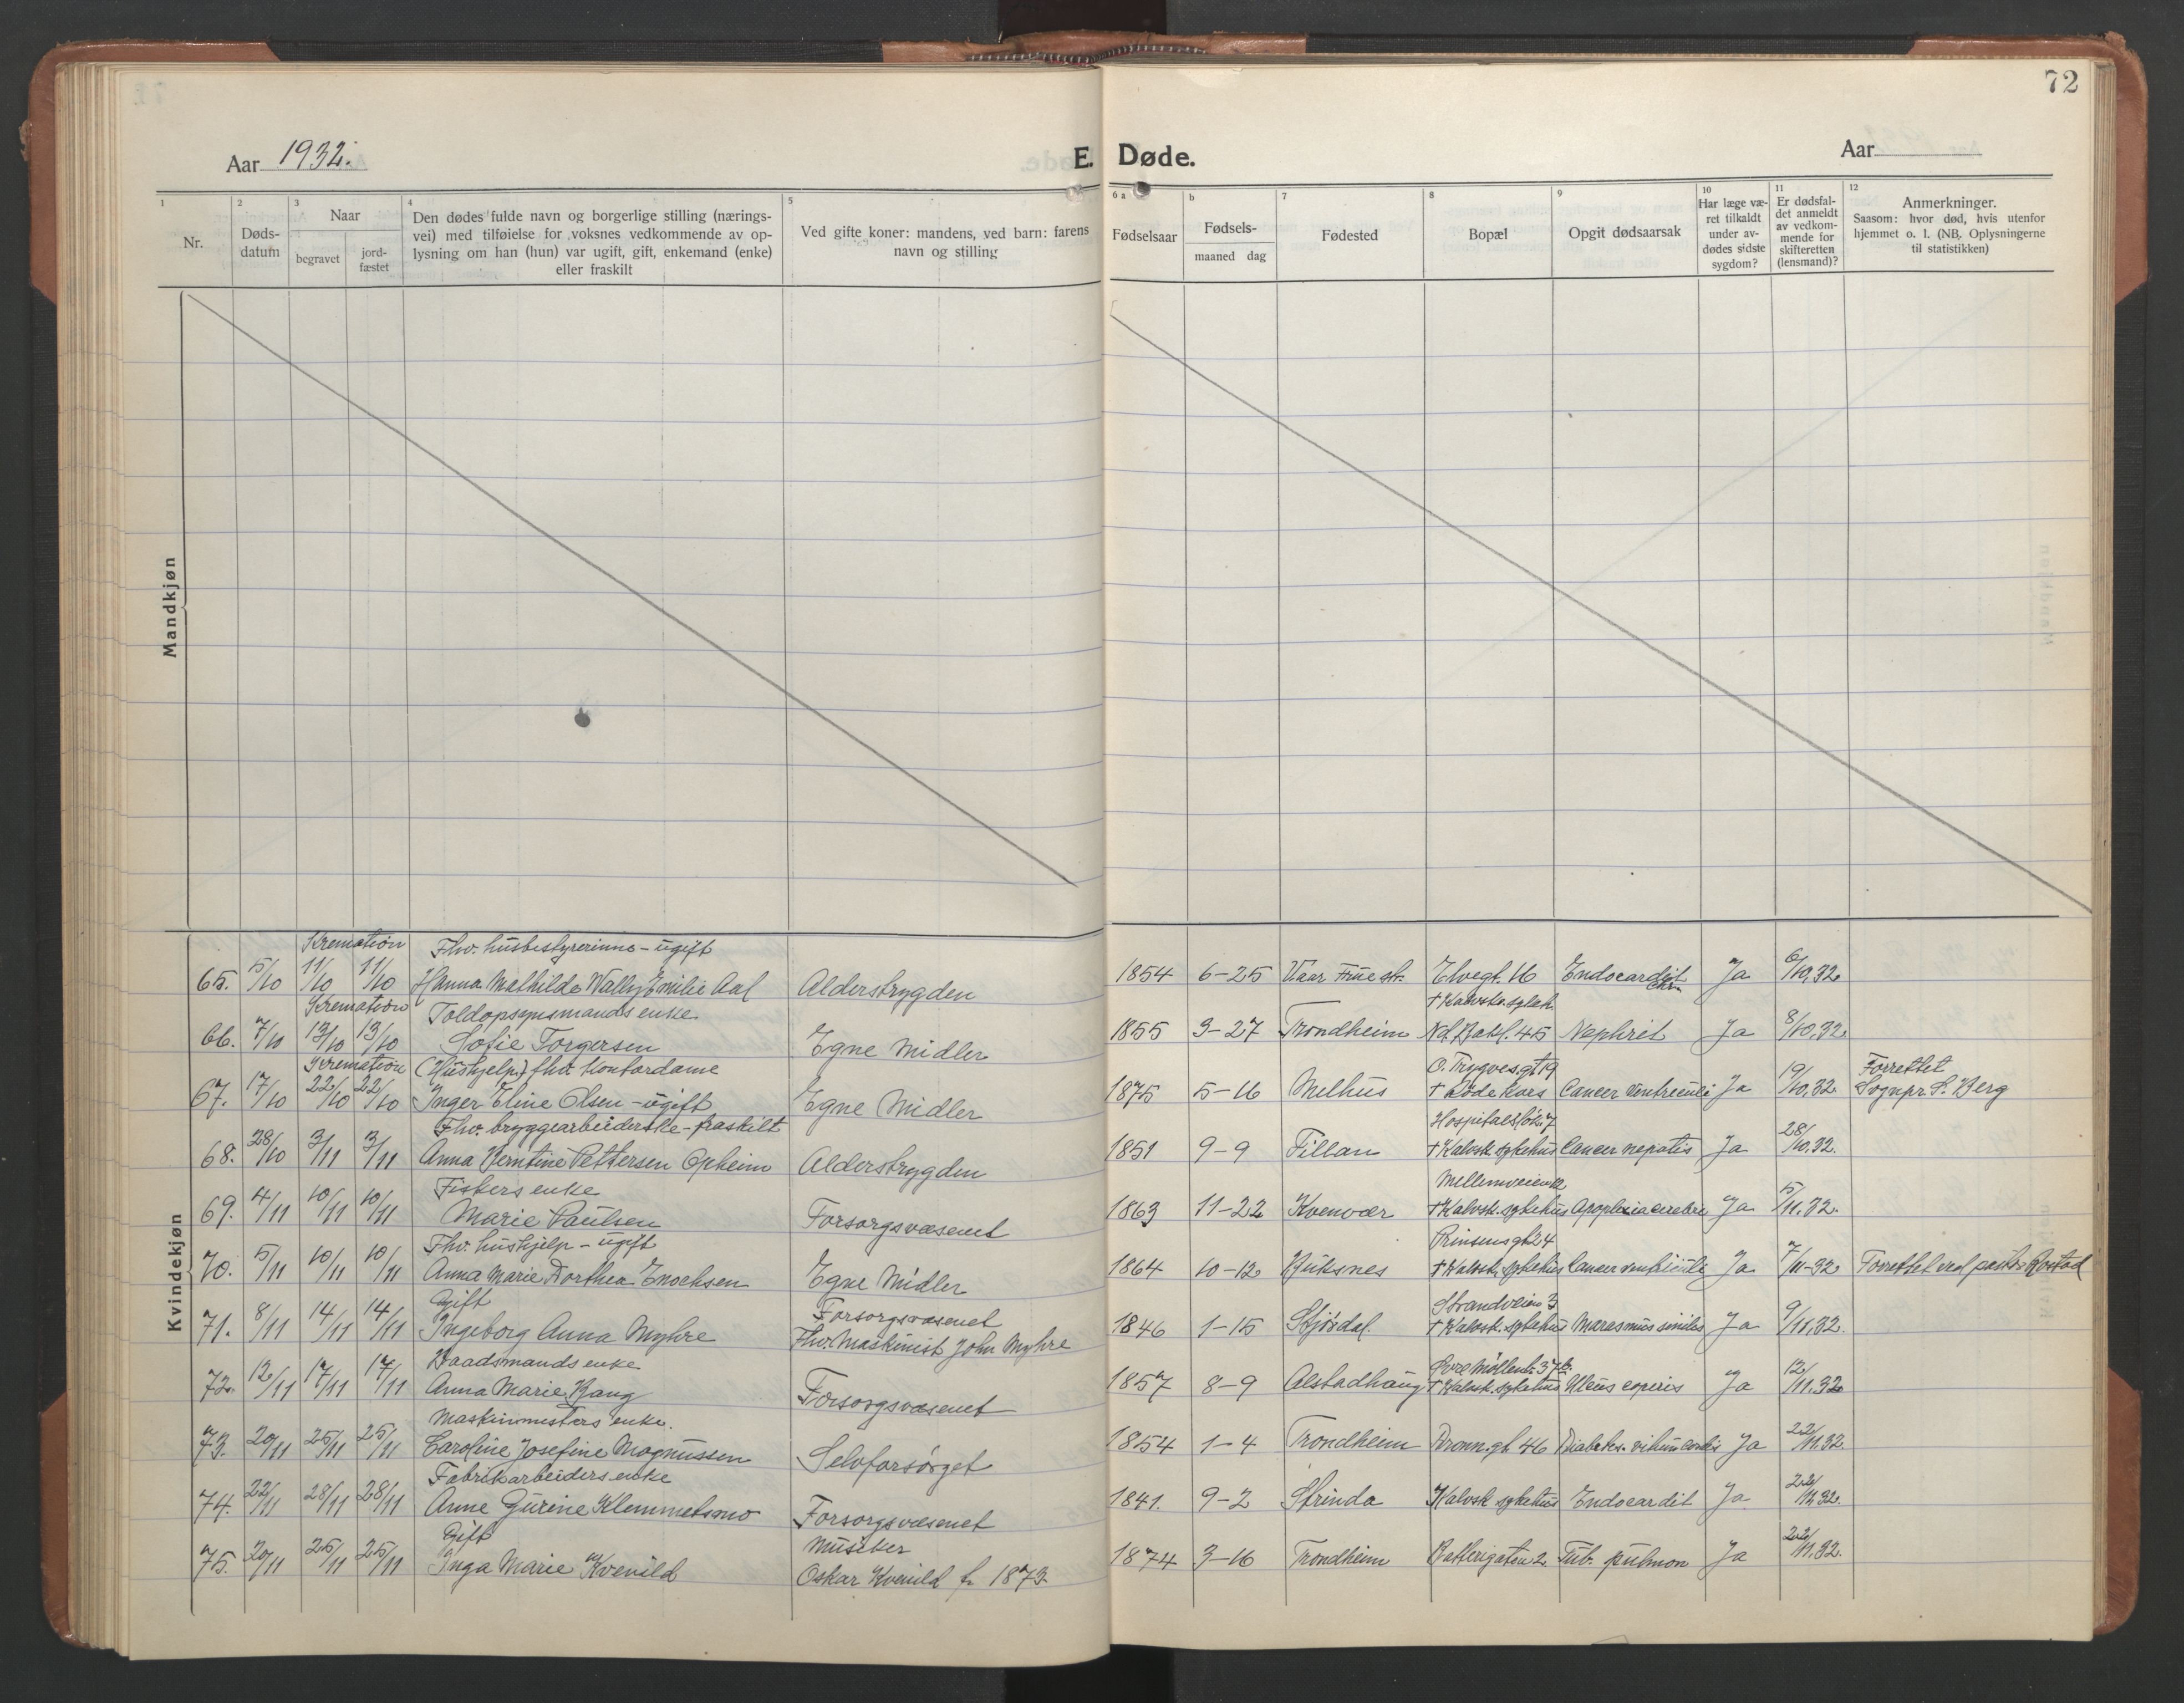 72
Aar 1932.
E. Døde.
Aar
1
2
3
4
5
6 a
b
7
8
9
10
11
12
Nr.
Døds-
datum
Naar
begravet
jord-
fæstet
Den dødes fulde navn og borgerlige stilling (nærings-
vei) med tilføielse for voksnes vedkommende av op-
lysning om han (hun) var ugift, gift, enkemand (enke)
eller fraskilt
Ved gifte koner: mandens, ved barn: farens
navn og stilling
Fødselsaar
Fødsels-
maaned dag
Fødested
Bopæl
Opgit dødsaarsak
Har læge væ-
ret tilkaldt
under av-
dødes sidste
sygdom?
Er dødsfal-
det anmeldt
av vedkom-
mende for
skifteretten
(lensmand)?
Anmerkninger.
Saasom: hvor død, hvis utenfor
hjemmet o. l. (NB. Oplysningerne
til statistikken)
Mandkjøn
Kvindekjøn
Kremation Fhv. husbestyrerinne - ugift
65. 5/10 11/10 11/10 Hanna Mathilde Wally Emilie Aal Alderstrygden 1854 6-25 Vaar Frue sk. Elvegt. 16 Endocardit chr. Ja 6/10.32
Kremation Toldopsynsmands enke † Kalvsk. sykeh.
66. 7/10 13/10 13/10 Sofie Torgersen Egne Midler 1855 3-27 Trondheim Nd. Bakl. 45 Nephrit Ja 8/10.32.
Kremation (Hushjelp) fhv. kontordame O. Trygves.gt 19 Forrettet
67. 17/10 22/10 22/10 Inger Eline Olsen - ugift Egne Midler 1875 5-16 Melhus † Røde Kors Cancer ventriculi Ja 19/10.32 Sognepr. S. Berg
Fhv. bryggearbeiderske - fraskilt Hospitalsløk. 7
68. 28/10 3/11 3/11 Anna Berntine Pettersen Opheim Alderstrygden 1851 9-9 Fillan † Kalvsk. sykehus Cancer hepatis Ja 28/10.32.
Fiskers enke Mellemveien 12
69. 4/11 10/11 10/11 Marie Paulsen Forsorgsvæsenet 1863 11-22 Kvenvær † Kalvsk. sykehus Apoplexia cerebri Ja 5/11.32.
Fhv. hushjelp - ugift Prinsensgt 24
70. 5/11 10/11 10/11 Anna Marie Dorthea Enochsen Egne Midler 1864 10-12 Buksnes † Kalvsk. sykehus Cancer ventriculi Ja 7/11-32 Forrettet ved pastor Rostad
Gift Forsorgsvæsenet Strandveien 3
71. 8/11 14/11 14/11 Ingeborg Anna Myhre Fhv. Maskinist John Myhre 1846 1-15 Stjørdal. † Kalvsk. sykehus Marasmus senilis Ja 9/11.32.
Baadsmands enke Øvre Møllenb. 37b.
72. 12/11 17/11 17/11 Anna Marie Bang Forsorgsvæsenet 1857 8-9 Alstadhaug † Kalvsk. sykehus Ulcus Ja 12/11.32
Maskinmesters enke.
73. 20/11 25/11 25/11 Caroline Josefine Magnussen Selvforsørget 1854 1-4 Trondheim Dronn.gt. 46 Diabetes. vitium cordis Ja 22/11.32.
Fabrikarbeiders enke
74. 22/11 28/11 28/11 Anne Gurine Klemmetsmo Forsorgsvæsenet 1841. 9-2 Strinda Kalvsk sykehus Endocardit Ja 22/11 32.
Gift Musiker
75. 20/11 25/11 25/11 Inga Marie Kvenild Oskar Kvenild f. 1873 1874 3-16 Trondheim Batterigaten 2. Tub. pulmon Ja 22/11.32.